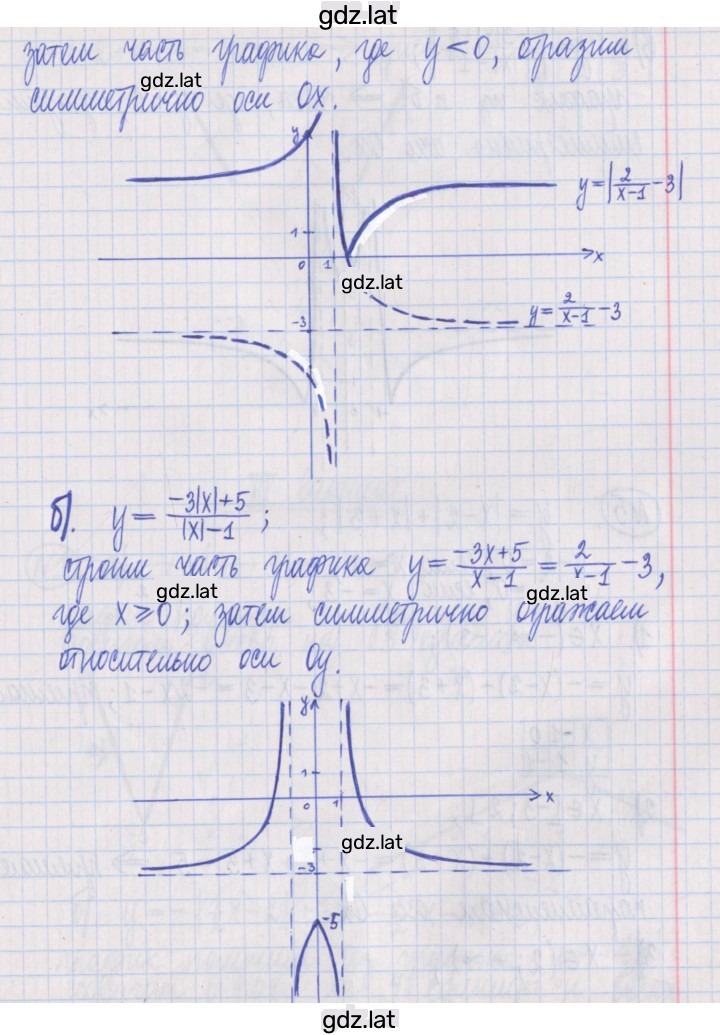 gdz.lat
затем часть графика, где y < 0, отразим
gdz.lat
симметрично оси Ox.
y
y = |2/(x-1) - 3|
1
0 1 x
gdz.lat
-3
y = 2/(x-1) - 3
б). y = (-3|x|+5)/(|x|-1) ;
строим часть графика y = (-3x+5)/(x-1) = 2/(x-1) - 3,
gdz.lat gdz.lat
где x ⩾ 0 ; затем симметрично отражаем
относительно оси Oy.
y
1
0 1 x
gdz.lat
-3
-5
gdz.lat